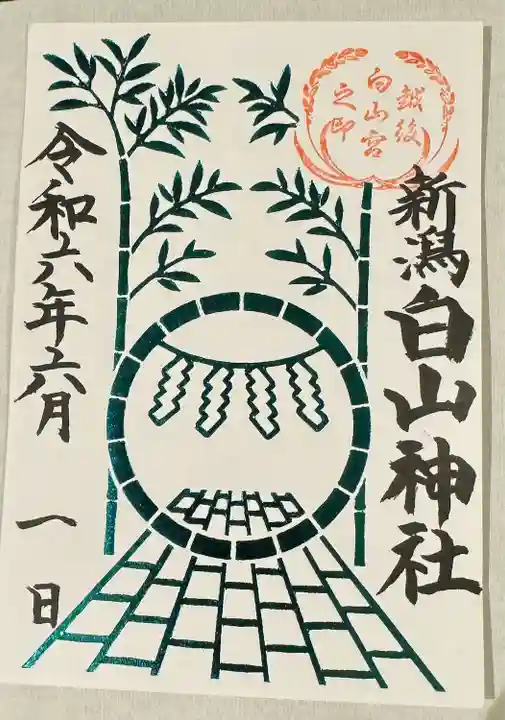 越後
白山宮
之印
新潟白山神社
令和六年六月一日